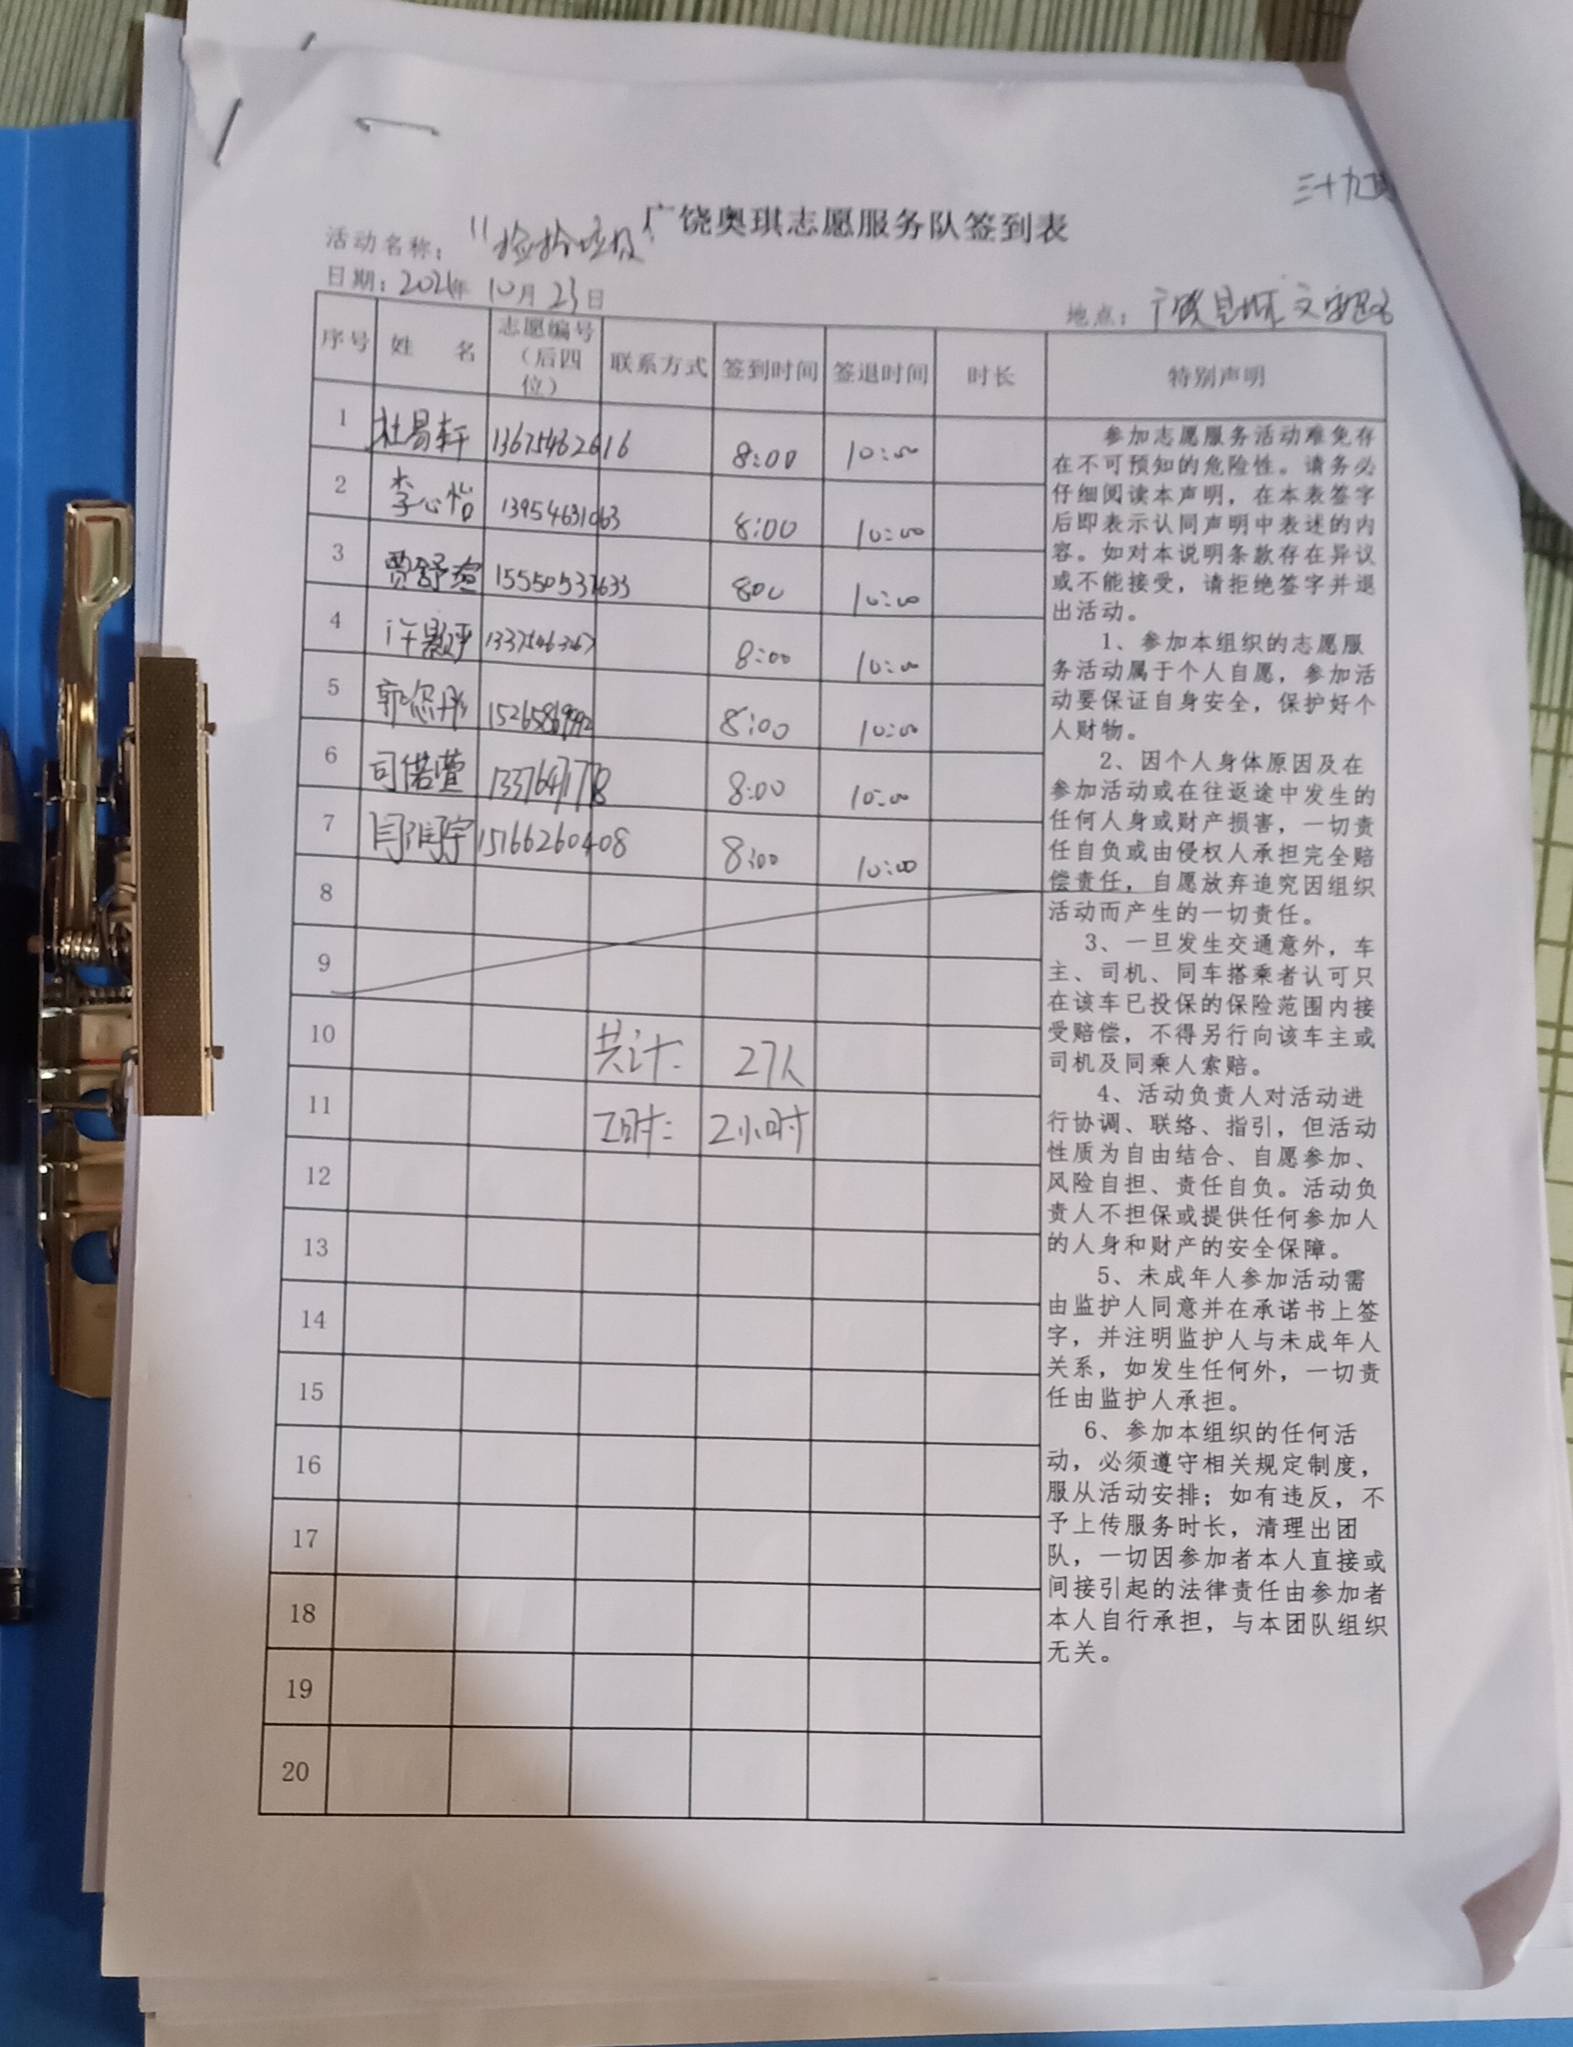 三十九
广饶奥琪志愿服务队签到表
活动名称：“捡拾垃圾”
日期：2021年 10月 23日
地点：广饶县城
序号 姓 名 志愿编号（后四位） 联系方式 签到时间 签退时间 时长 特别声明
1 杜易轩 13675462616 8:00 10:00
2 李心怡 13954631063 8:00 10:00
3 贾舒 15550537633 800 10:00
4 许 8:00 10:00
5 郭 8:00 10:00
6 司偌萱 8:00 10:00
7 闫 15166260408 8:00 10:00
8
9
10 共计： 27人
11 工时： 2小时
12
13
14
15
16
17
18
19
20
参加志愿服务活动难免存
在不可预知的危险性。请务必
仔细阅读本声明，在本表签字
后即表示认同声明中表述的内
容。如对本说明条款存在异议
或不能接受，请拒绝签字并退
出活动。
1、参加本组织的志愿服
务活动属于个人自愿，参加活
动要保证自身安全，保护好个
人财物。
2、因个人身体原因及在
参加活动或在往返途中发生的
任何人身或财产损害，一切责
任自负或由侵权人承担完全赔
偿责任，自愿放弃追究因组织
活动而产生的一切责任。
3、一旦发生交通意外，车
主、司机、同车搭乘者认可只
在该车已投保的保险范围内接
受赔偿，不得另行向该车主或
司机及同乘人索赔。
4、活动负责人对活动进
行协调、联络、指引，但活动
性质为自由结合、自愿参加、
风险自担、责任自负。活动负
责人不担保或提供任何参加人
的人身和财产的安全保障。
5、未成年人参加活动需
由监护人同意并在承诺书上签
字，并注明监护人与未成年人
关系，如发生任何外，一切责
任由监护人承担。
6、参加本组织的任何活
动，必须遵守相关规定制度，
服从活动安排；如有违反，不
予上传服务时长，清理出团
队，一切因参加者本人直接或
间接引起的法律责任由参加者
本人自行承担，与本团队组织
无关。